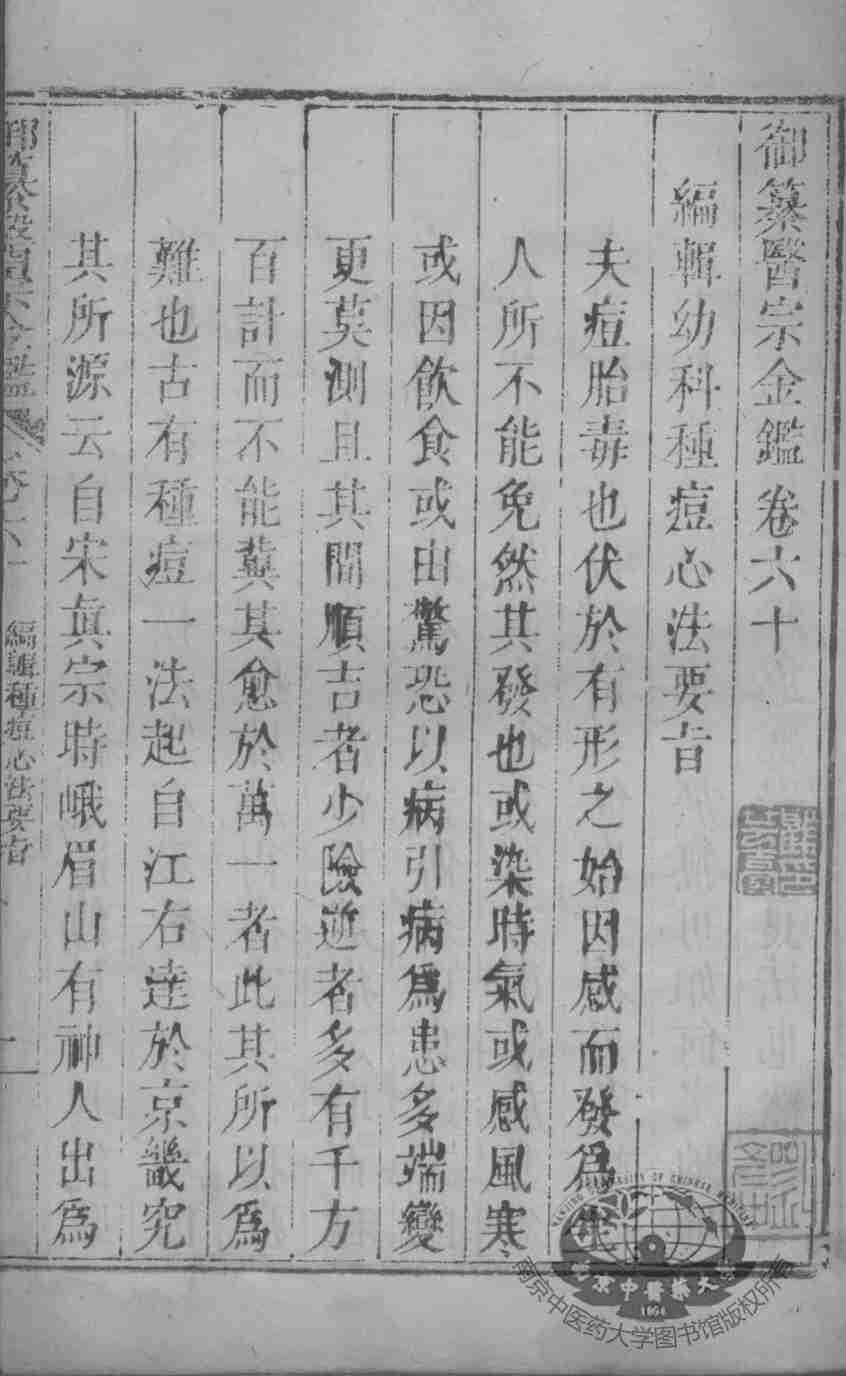 御纂醫宗金鑑卷六十
編輯幼科種痘心法要旨
夫痘胎毒也伏於有形之始因感而發爲生
人所不能免然其發也或染時氣或感風寒
或因飲食或由驚恐以病引病爲患多端變
更莫測且其間順吉者少險逆者多有千方
百計而不能冀其愈於萬一者此其所以爲
難也古有種痘一法起自江右達於京畿究
其所源云自宋真宗時峨眉山有神人出爲
御纂醫宗金鑑 卷六十 編輯種痘心法要旨 一
南京中医药大学图书馆版权所有
NANJING UNIVERSITY OF CHINESE MEDICINE
南京中醫藥大學